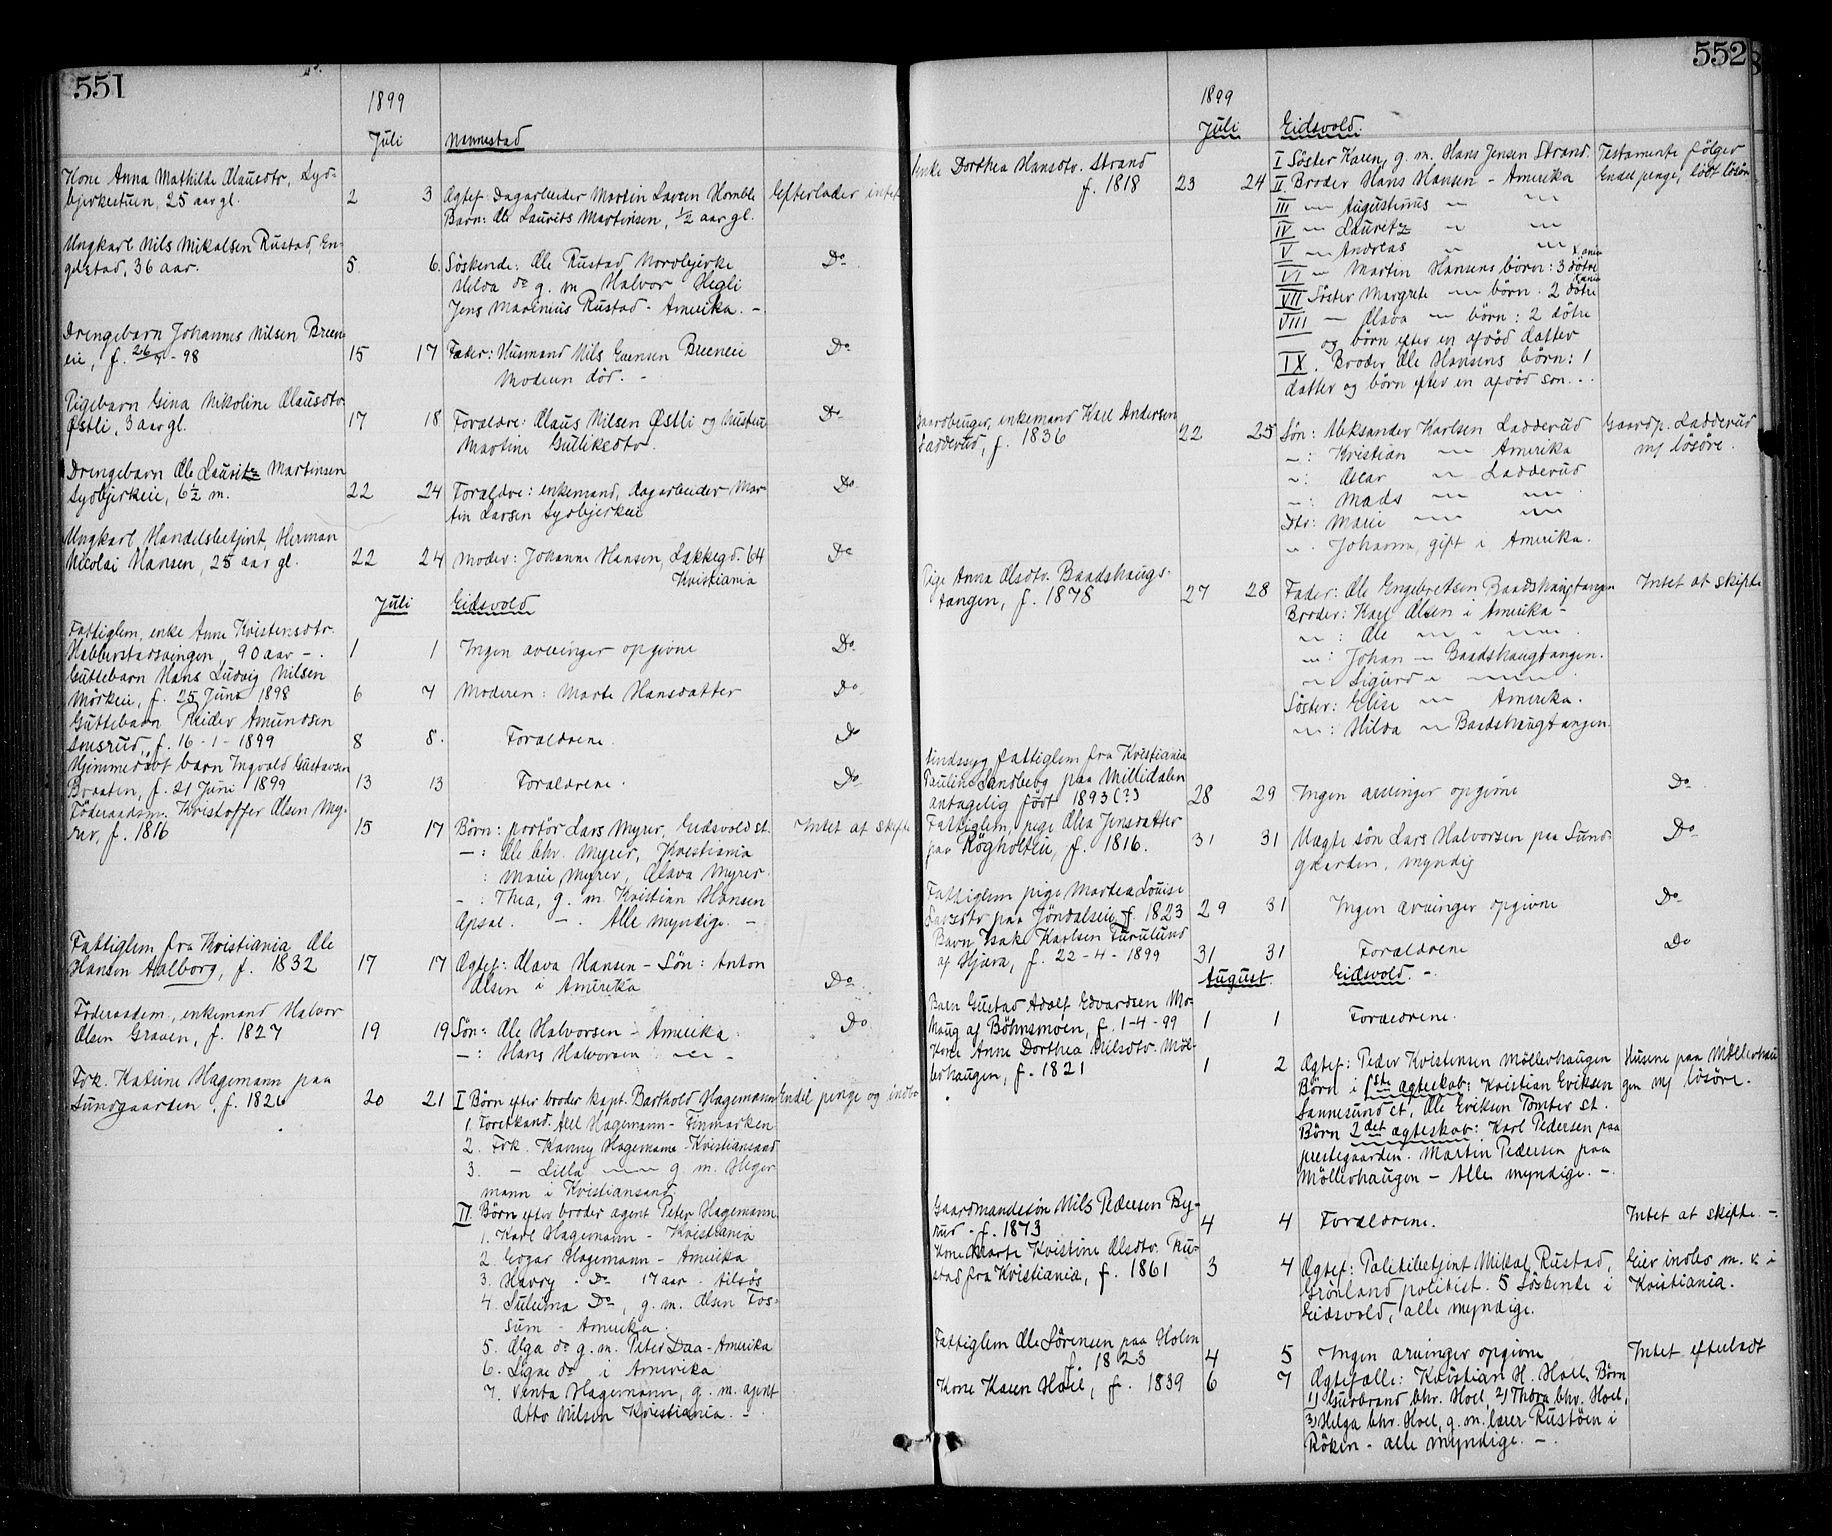 551
1899
Juli Nannestad
Kone Anna Mathilde Olausdtr, Syd-
bjerkestuen, 25 aar gl. 2 3 Ægtef: Dagarbeider Martin Larsen Efterlader intet
Barn: Ole Laurits Martinsen, 1/2 aar gl.
Ungkarl Nils Mikalsen Rustad, En-
gelstad, 36 aar. 5 6 Söskende: Ole Rustad Nordbjerke Do
Hilda do g. m. Halvor Hegli
Jens Marenius Rustad - Amerika. -
Drengebarn Johannes Nilsen Breen-
eie, f. 98 15 17 Fader: Husmand Nils Breeneie Do
Moderen död. -
Pigebarn Gina Nikoline Olausdtr
Østli, 3 aar gl. 17 18 Forældre: Olaus Nilsen Østli og Hustru Do
Martine Gulliksdtr.
Drengebarn Ole Lauritz Martinsen
Sydbjerkeie, 6 1/2 m. 22 24 Forældre: enkemand, dagarbeider Mar-
tin Larsen Sydbjerkeie Do
Ungkarl, Handelsbetjent, Herman
Nicolai Hansen, 25 aar gl. 22 24 Moder: Johanne Hansen, Lakkegd. 64 Do
Kristiania
Juli Eidsvold
Fattiglem, enke Anne Kristensdtr.
Habberstadvingen, 90 aar -. 1 1 Ingen arvinger opgivne Do
Guttebarn Hans Ludvig Nilsen
Mörkeie, f. 25 Juni 1898 6 7 Moderen: Marte Hansdatter Do
Guttebarn Reidar Amundsen
f. 16-1-1899 8 8. Forældrene. Do
Hjemmedøbt barn Ingvald Gustavsen
Braaten, f. 21 Juni 1899 13 13 Forældrene. Do
Föderaadsm. Kristoffer Olsen My-
rer, f. 1816 15 17 Börn: portör Lars Myrer, Eidsvold st. Intet at skifte
-: Ole Chr. Myrer, Kristiania
: Marie Myrer, Olava Myrer
-: Thea, g. m. Kristian Hansen
Opsal. -. Alle myndige. -
Fattiglem fra Kristiania Ole
Hansen Aalborg, f. 1832 17 17 Ægtef: Olava Hansen - Sön: Anton
Olsen i Amerika Do
Föderaadsm., enkemand Halvor
Olsen Graven, f. 1827 19 19 Sön: Ole Halvorsen - Amerika. Do
-: Hans Halvorsen - " -
Frk. Katrine Hagemann paa
Sundgaarden, f. 1826 20 21 I Börn efter broder kapt. Barthold Hagemann Endel penge og indbo
1. Forstkand. Axel Hagemann - Finmarken
2. Frk. Fanny Hagemann - Kristiansand
3. - Lilla - " - g. m. Heger-
mann i Kristiansand
II. Börn efter broder agent Peter Hagemann
1. Karl Hagemann - Kristiania
2. Hagemann - Amerika
3. Harry - Do 17 aar - tilsös
4. Do, g. m. Olsen Fos-
sum - Amerika.
5. Olga do g. m. Peter Daa - Amerika
6. Signe do i Amerika
7. Hagemann, g. m. agent
Otto Nilsen Kristiania. -
552
1899
Juli Eidsvold.
Enke Dorthea Hansdtr. Strand
f. 1818 23 24 I Söster Karen, g. m. Hans Jensen Strand. Testamente fölger
II. Broder Hans Hansen - Amerika Endel penge, lidt lösöre
III - " - Augustinus - " - - " -
IV - " - Lauritz - " - - " -
V - " - Andreas - " - - " -
VI - " - Martin Hansens börn: 3 dötre
VII Söster Margrete - " - börn: 2 dötre
VIII - " - Olava - " - börn: 2 dötre
og börn efter en afdöd datter
IX. Broder Ole Hansens börn: 1
datter og börn efter en afdöd sön. . .
Gaardbruger, enkemand Karl Andersen
Ladderud, f. 1836 22 25 Sön: Aleksander Karlsen Ladderud Gaardp. Ladderud
-: Kristian - " - Amerika m/ lösöre.
-: Oscar - " - Ladderud
-: Mads - " - - " -
Dtr: Marie - " - - " -
-. Johanna, gift i Amerika.
Pige Anna Olsdtr. Baadshaugs-
tangen, f. 1878 27 28 Fader: Ole Engebretsen Baadshaugtangen Intet at skifte
Broder: Karl Olsen i Amerika -
- " -: Ole - " - i - " - .
- " -: Johan - " - Baadshaugtangen.
- " - Sigurd - " - - " - .
Söster: Elise - " - Amerika.
- " -: Hilda - " - Baadshaugtangen.
Sindssyg fattiglem fra Kristiania
Pauline Sandberg paa Millidalen
antagelig födt 1893 (?) 28 29 Ingen arvinger opgivne Do
Fattiglem, pige Olea Jensdatter
paa Rögholteie, f. 1816. 31 31 Uægte sön Lars Halvorsen paa Sund-
gaarden, myndig Do
Fattiglem pige Martea Louise
Larsdtr paa Jöndalseie, f. 1823 29 31 Ingen arvinger opgivne Do
Barn Isak Karlsen Furulund
af Hjæra, f. 22-4-1899 31 31 Forældrene Do
August. Eidsvold. -.
Barn Gustav Adolf Edvardsen Mo-
haug af Böhnsmoen, f. 1-4-99 1 1 Forældrene.
Kone Anne Dorthea Nilsdtr. Möl-
lerhaugen, f. 1821 1 2 Ægtef: Peder Kristensen Möllerhaugen Husene paa Möllerhau-
Börn i 1ste ægteskab: Kristian Eriksen gen m/ lösöre.
Sannesund st, Ole Eriksen Tomter st.
Börn 2det ægteskab: Karl Pedersen paa
prestegaarden. Martin Pedersen paa
Möllerhaugen - Alle myndige. -.
Gaardmandssön Nils Pedersen By-
rud - f. 1873 4 4 Forældrene. Intet at skifte. -.
Kone Marte Kristine Olsdtr. Ru-
stad fra Kristiania, f. 1861 3 4 Ægtef: Politibetjent Mikal Rustad, Eier indbo m. v. i
Grönland politist. 5 Söskende i Kristiania.
Eidsvold, alle myndige.
Fattiglem Ole Sörensen paa Holm
f. 1823 4 5 Ingen arvinger opgivne Intet efterladt
Kone Karen Hoel, f. 1839 6 7 Ægtefælle: Kristian H. Hoel. Börn
1) Gudbrand Chr. Hoel, 2) Thora Chr. Hoel,
3) Helga Chr. Hoel, g. m. lærer Rustöen i
Röken - alle myndige. -.